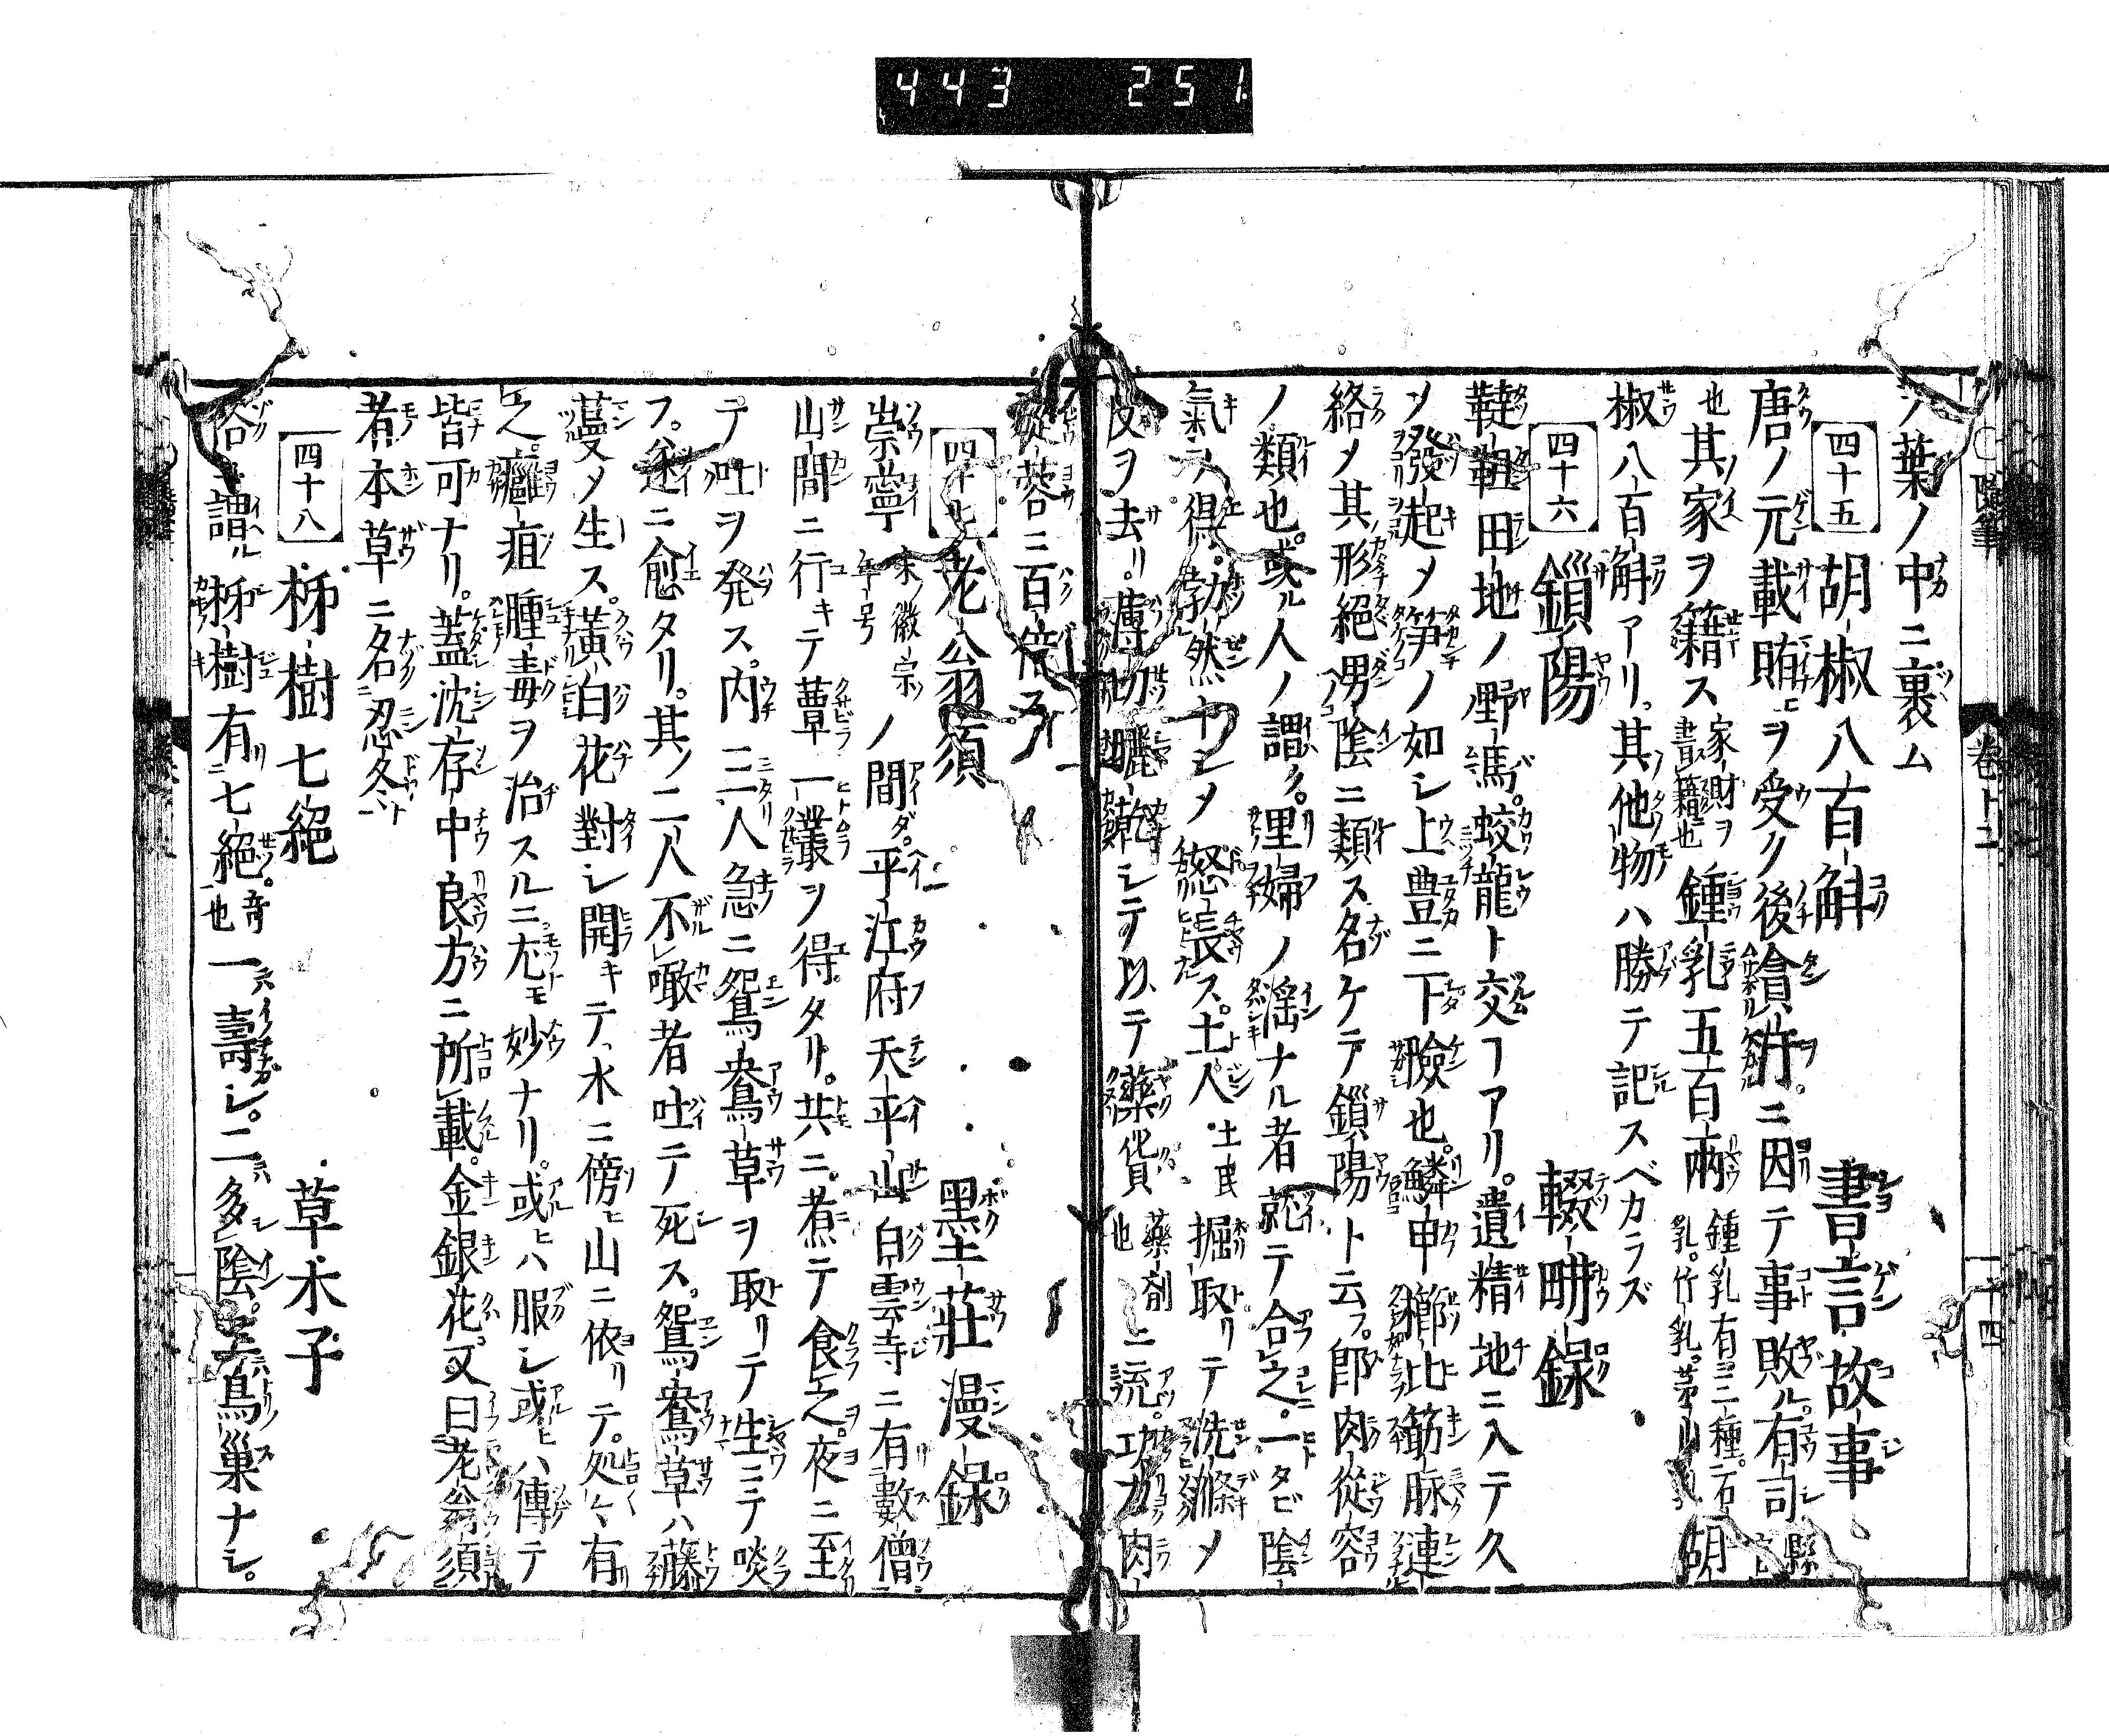 443 251
ノ葉ノ中ニ裹ム
四十五 胡椒八百斛 書言故事
唐ノ元載賄ヲ受ク後貪ニ因テ事敗ル有司
也其家ヲ籍ス 家財ヲ書籍也 鍾乳五百兩 鍾乳有三種石乳竹乳茅山乳 胡
椒八百斛アリ其他物ハ勝テ記スベカラズ
四十六 鎖陽 輟畊録
韃靼田地ノ野馬蛟龍ト交フアリ遺精地ニ入テ久
ノ發起メ笋ノ如シ上豊ニ下險也鱗甲櫛比筋脉連
絡メ其形絕男陰ニ類ス名ケテ鎖陽ト云フ即肉從容
ノ類也或ル人ノ謂ク里婦ノ淫ナル者就テ合之一タビ陰
氣ヲ得勃然ヤシメ怒長ス土人 土民 掘取リテ洗滌メ
皮ヲ去リ薄切曬乾シテ以テ藥貨 藥剤也 ニ 功力肉
從蓉ニ百倍ス
四十七 老翁須 墨莊漫録
崇寧 宋徽宗年号 ノ間平江府天平山白雲寺ニ有數僧
山間ニ行キテ蕈一叢ヲ得タリ共ニ煮テ食之夜ニ至
テ吐ヲ発ス内三人急ニ鴛鴦草ヲ取リテ生ニテ啖
フ遂ニ愈タリ其ノ二人不噉者吐テ死ス鴛鴦草ハ藤
蔓メ生ス黃白花對シ開キテ水ニ傍ヒ山ニ依リテ処々有
之癰疽腫毒ヲ治スルニ尤モ妙ナリ或ヒハ服シ或ヒハ傅テ
皆可ナリ蓋沈存中良方ニ所載金銀花又曰老翁須
者本草ニ名忍冬
四十八 柹樹七絕 草木子
俗ニ謂ル柹樹有七絕 奇也 一壽シ二多陰三鳥巢ナシ